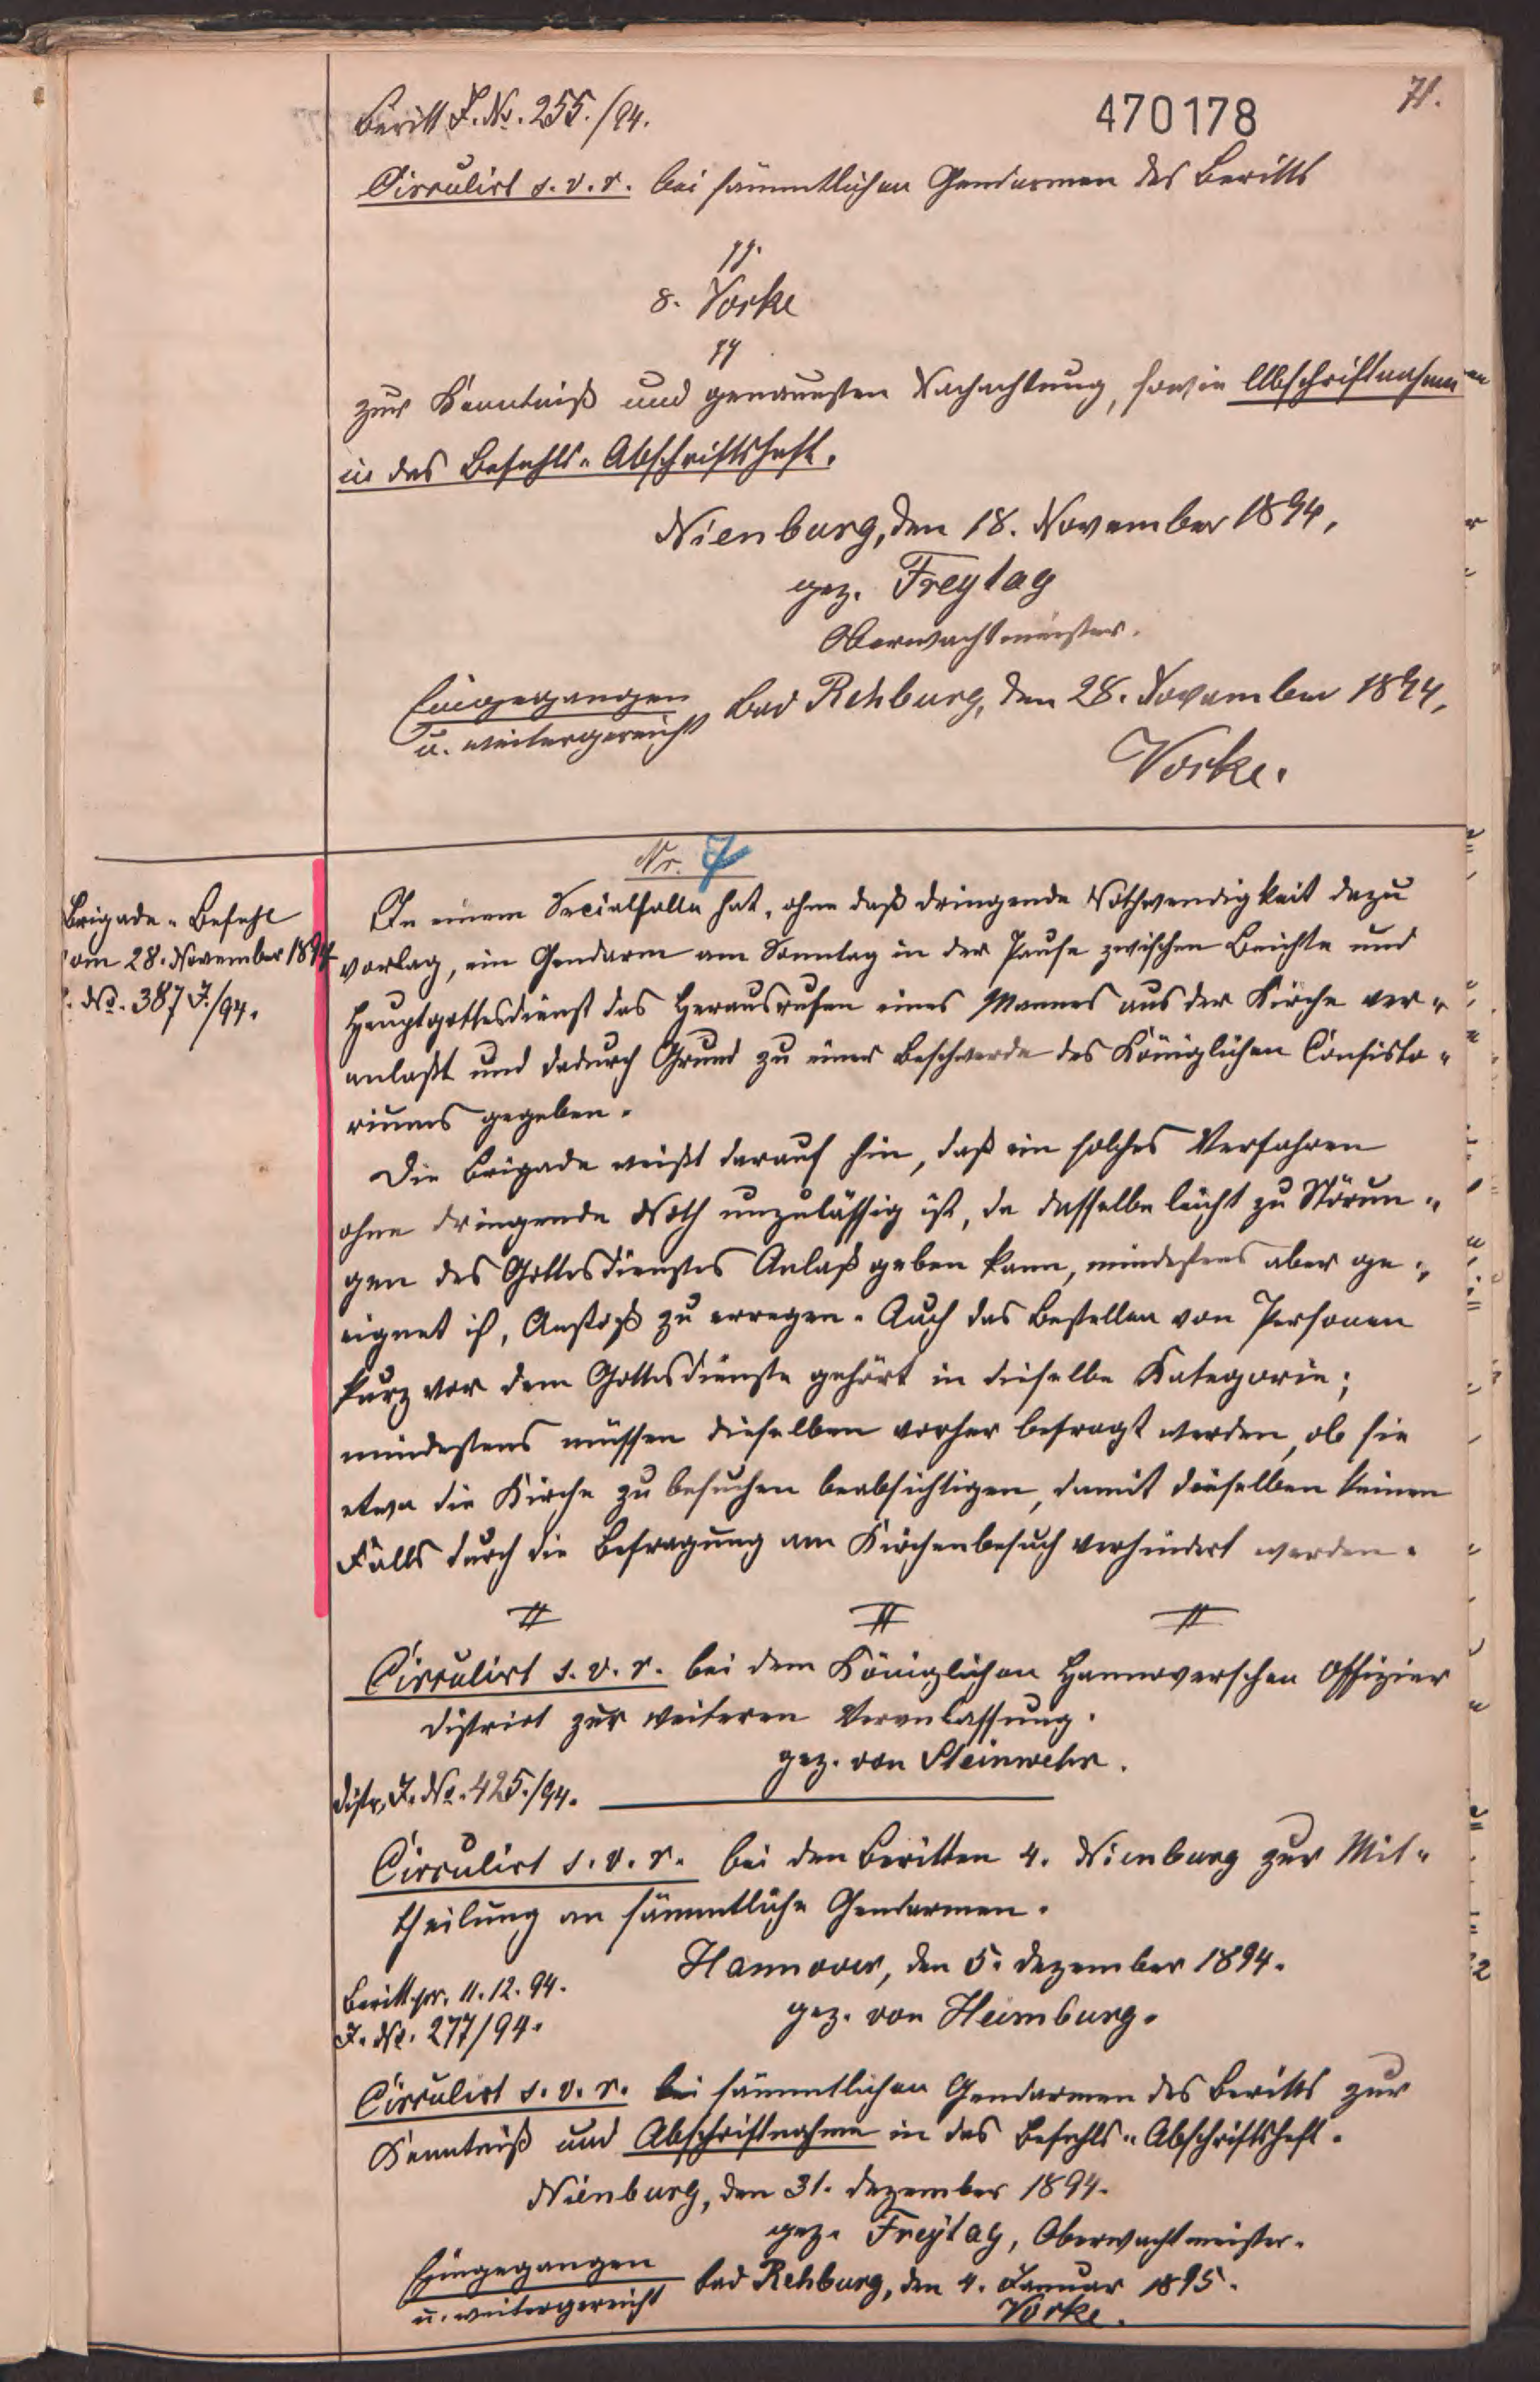 71.
470178
Beritt J. No. 255./94.
Circulirt s. v. r. bei sämmtlichen Gendarmen des Beritts
pp.
8. Vorke
pp
zur Kenntniß und genauesten Nachachtung, sowie Abschriftnahme
in das Befehls-Abschriftsheft.
Nienburg, den 18. November 1894.
gez. Freytag
Oberwachtmeister.
Eingegangen
u. weitergereicht
Bad Rehburg, den 28. November 1894.
Vorke.
Nr. 7
Brigade-Befehl
vom 28. November 1894
No. 387 J./94.
In einem Specialfalle hat, ohne daß dringende Nothwendigkeit dazu
vorlag, ein Gendarm am Sonntag in der Pause zwischen Beichte und
Hauptgottesdienst das Herausrufen eines Mannes aus der Kirche ver-
anlaßt und dadurch Grund zu einer Beschwerde des Königlichen Consisto-
riums gegeben.
Die Brigade weißt darauf hin, daß ein solches Verfahren
ohne dringende Noth unzulässig ist, da dasselbe leicht zu Störun-
gen des Gottesdienstes Anlaß geben kann, mindestens aber ge-
eignet ist, Anstoß zu erregen. Auch das Bestellen von Personen
kurz vor dem Gottesdienste gehört in dieselbe Kategorie;
mindestens müssen dieselben vorher befragt werden, ob sie
etwa die Kirche zu besuchen beabsichtigen, damit dieselben keinen
Falls durch die Befragung am Kirchenbesuch verhindert werden.
Circulirt s. v. r. bei dem Königlichen Hannoverschen Offizier
District zur weiteren Veranlassung.
gez. von Steinwehr.
Distr. J. No. 425./94.
Circulirt s. v. r. bei den Beritten 4. Nienburg zur Mit-
theilung an sämmtliche Gendarmen.
Hannover, den 5. Dezember 1894.
Beritt pr. 11.12.94.
J. No. 277/94.
gez. von Heimburg.
Circulirt s. v. r. bei sämmtlichen Gendarmen des Beritts zur
Kenntniß und Abschriftnahme in das Befehls-Abschriftsheft.
Nienburg, den 31. Dezember 1894.
gez. Freytag, Oberwachtmeister.
Eingegangen
u. weitergereicht
Bad Rehburg, den 4. Januar 1895.
Vorke.